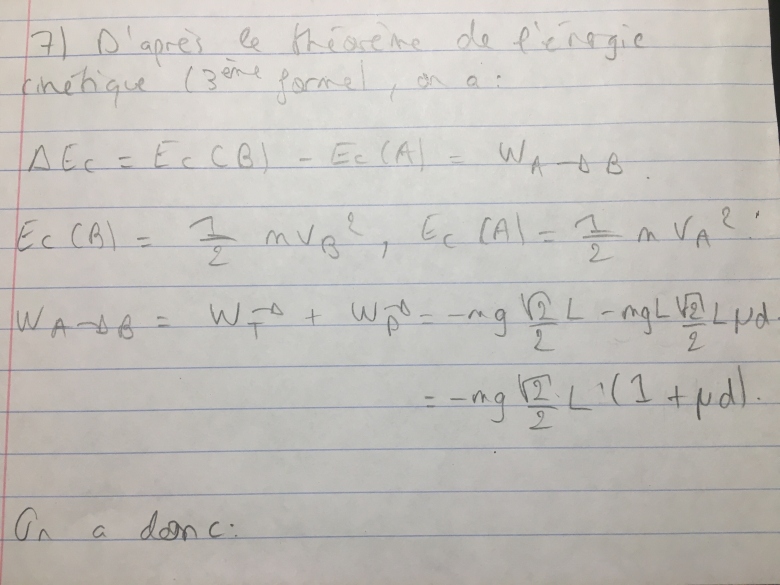 7) D'après le théorème de l'énergie
cinétique (3ème forme), on a:
ΔEc = Ec(B) - Ec(A) = W A→B.
Ec(B) = 1/2 m V_B², Ec(A) = 1/2 m V_A².
W A→B = W T→ + W P→ = -mg √2/2 L - mgL √2/2 L μd.
= -mg √2/2 L·(1 + μd).
On a donc: